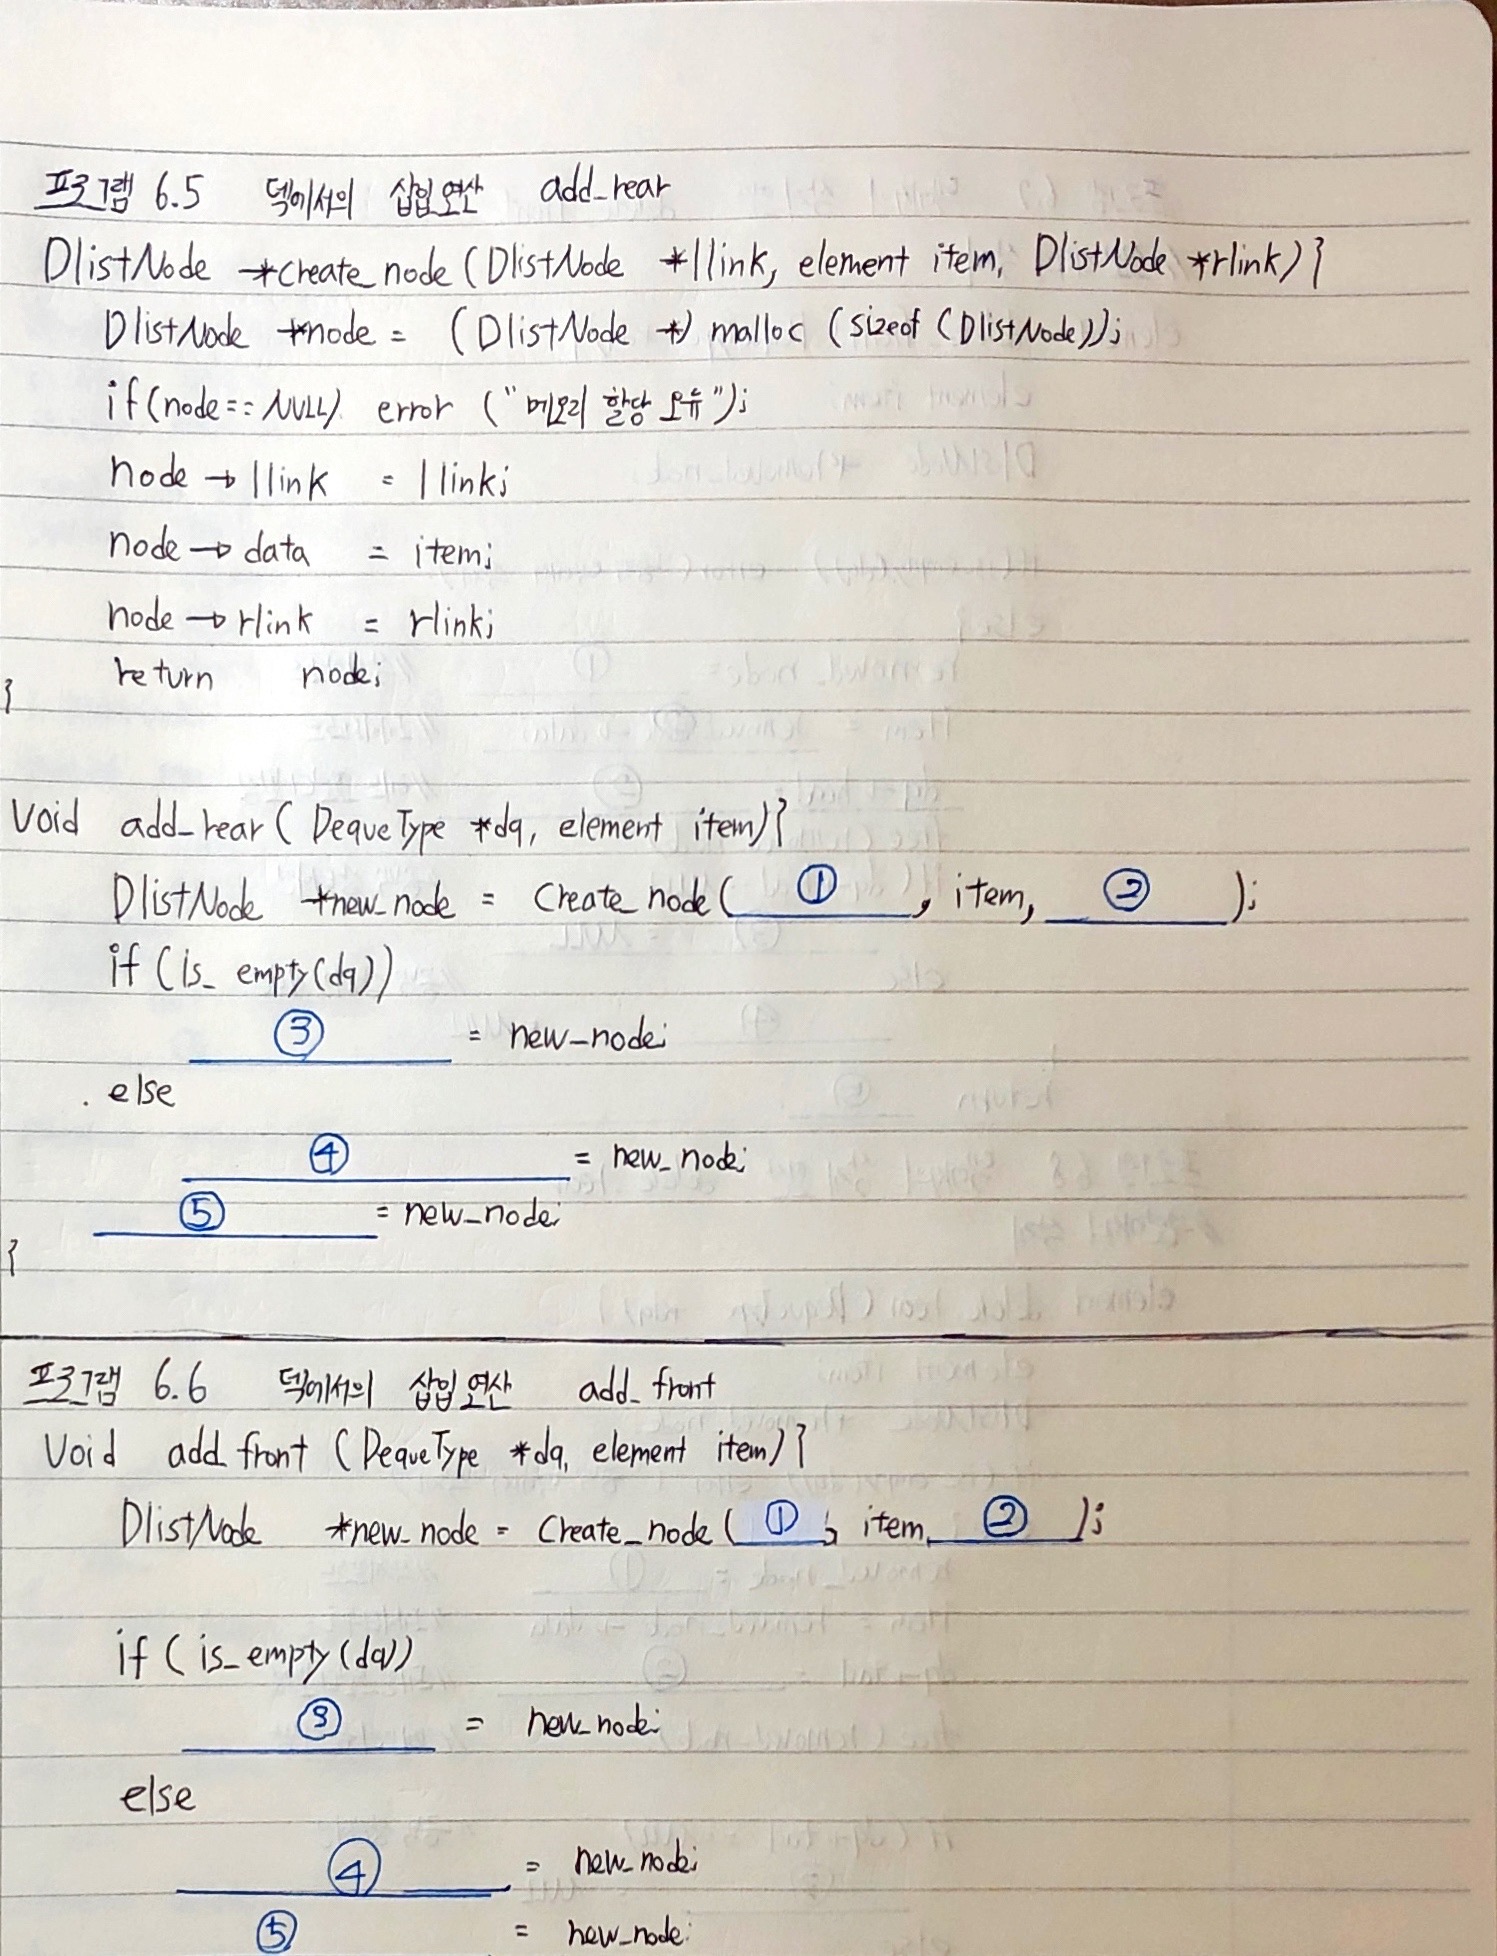 프로그램 6.5 덱에서의 삽입연산 add_rear
DlistNode *create_node (DlistNode *llink, element item, DlistNode *rlink){
DlistNode *node = (DlistNode *) malloc (sizeof (DlistNode));
if(node == NULL) error ("메모리 할당 오류");
node → llink = llink;
node → data = item;
node → rlink = rlink;
return node;
}
void add_rear ( DequeType *dq, element item){
DlistNode *new_node = Create_node ( ① , item, ② );
if (is_empty(dq))
③ = new_node;
else
④ = new_node;
⑤ = new_node;
}
프로그램 6.6 덱에서의 삽입연산 add_front
Void add_front (DequeType *dq, element item){
DlistNode *new_node = Create_node ( ① , item, ② );
if ( is_empty (dq))
③ = new_node;
else
④ = new_node;
⑤ = new_node;